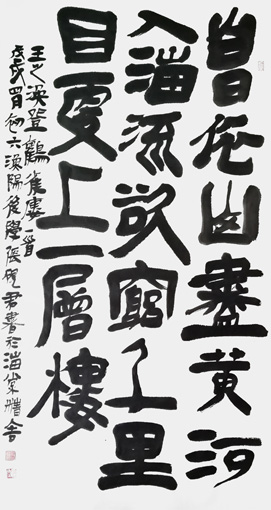 白日依山盡黄河
入海流欲窮千里
目更上一層樓
王之渙登鶴雀樓一首
戊戌四月初六陽後學張硯君書於海棠精舍